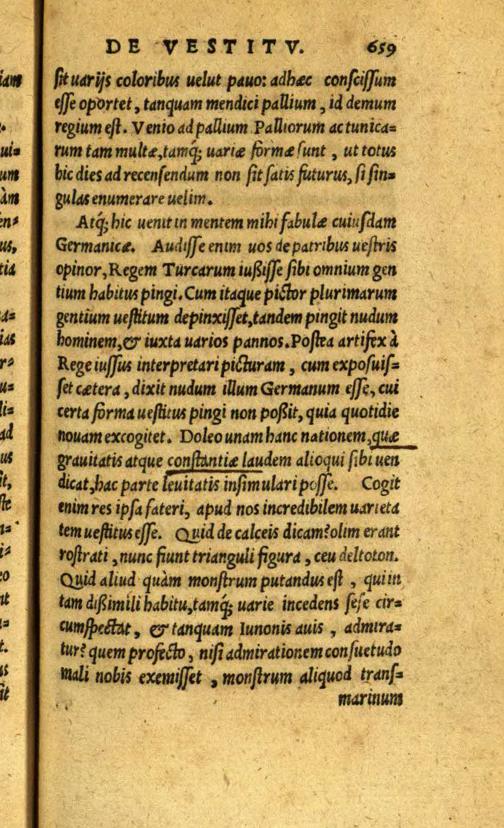 DE VESTITV. 659
sit uarijs coloribus uelut pauo: adhæc conscissum
esse oportet, tanquam mendici pallium, id demum
regium est. Venio ad pallium Palliorum ac tunica=
rum tam multæ, tamq́; uariæ formæ sunt, ut totus
hic dies ad recensendum non sit satis futurus, si sin=
gulas enumerare uelim.
Atq́; hic uenit in mentem mihi fabulæ cuiusdam
Germanicæ. Audisse enim uos de patribus uestris
opinor, Regem Turcarum iußisse sibi omnium gen
tium habitus pingi. Cum itaque pictor plurimarum
gentium uestitum depinxisset, tandem pingit nudum
hominem, & iuxta uarios pannos. Postea artifex à
Rege iussus interpretari picturam, cum exposuis=
set cætera, dixit nudum illum Germanum esse, cui
certa forma uestitus pingi non poßit, quia quotidie
nouam excogitet. Doleo unam hanc nationem, quæ
grauitatis atque constantiæ laudem alioqui sibi uen
dicat, hac parte leuitatis insimulari posse. Cogit
enim res ipsa fateri, apud nos incredibilem uarieta
tem uestitus esse. Quid de calceis dicam? olim erant
rostrati, nunc fiunt trianguli figura, ceu deltoton.
Quid aliud quàm monstrum putandus est, qui in
tam dißimili habitu, tamq́; uarie incedens sese cir=
cumspectat, & tanquam Iunonis auis, admira=
tur? quem profecto, nisi admirationem consuetudo
mali nobis exemisset, monstrum aliquod trans=
marinum